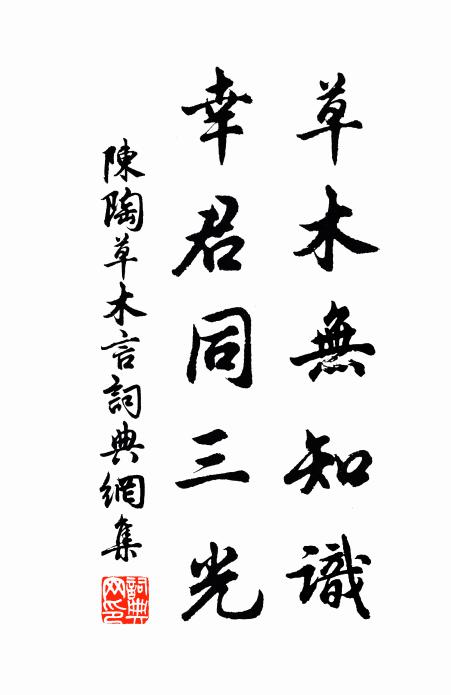 草木無知識
幸君同三光
陳陶草木言詞典網集
詞典網印